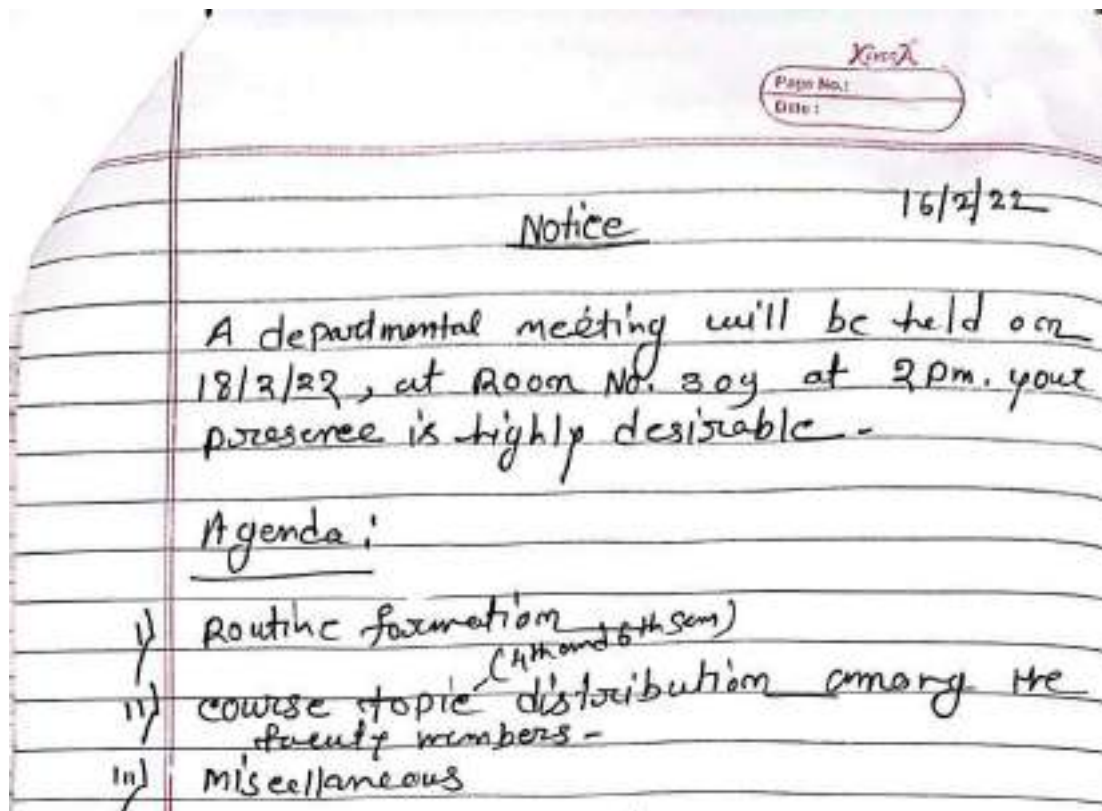 Page No.:
Date:
16/2/22
Notice
A departmental meeting will be held on
18/2/22, at Room No. 309 at 2 pm. your
presence is highly desirable -
Agenda:
i) Routine formation
(4th and 6th Sem)
ii) course topic distribution among the
faculty members -
iii) Miscellaneous